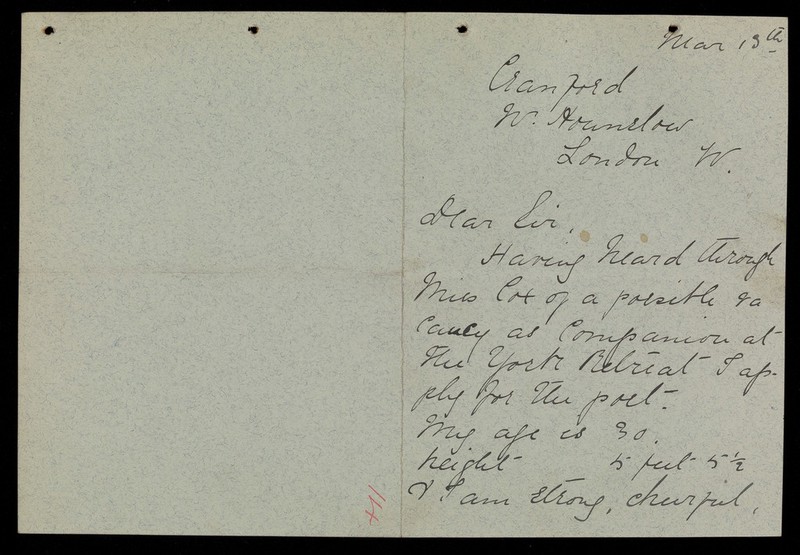 Mar 13th
Cranford
Nr. Hounslow
London W.
Dear Sir,
Having heard through
Miss Cox of a possible va
cancy as Companion at
The York Retreat I ap-
ply for the post.
My age is 30.
height 5 feet 5 1/2
& I am strong, cheerful,